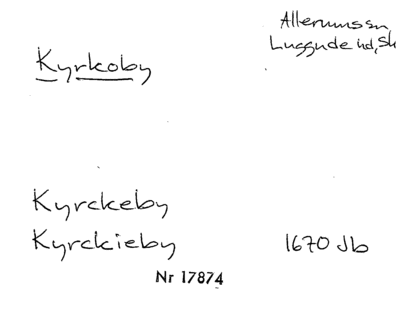 Allerums sn
Luggude hd, Sk
Kyrkoby
Kyrckeby
Kyrckieby 1670 Jb
Nr 17874